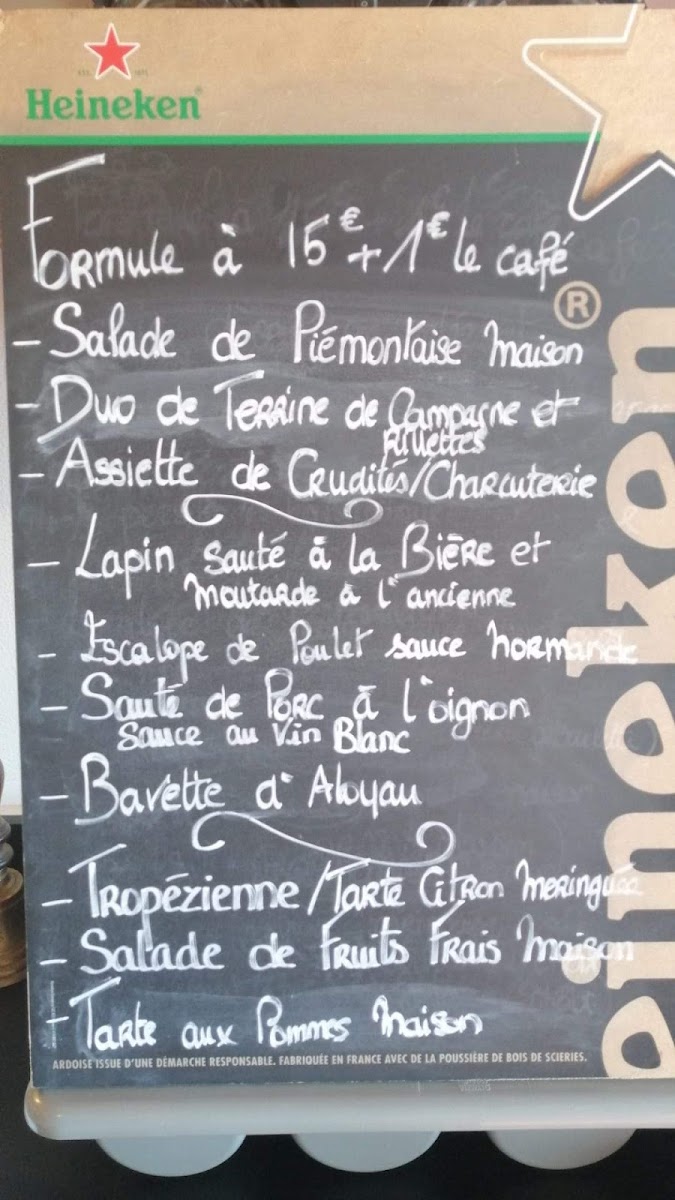 Heineken®
Formule à 15€ + 1€ le café
- Salade de Piémontaise maison
- Duo de Terrine de Campagne et
rillettes
- Assiette de Crudités/Charcuterie
- Lapin sauté à la Bière et
moutarde à l'ancienne
- Escalope de Poulet sauce normande
- Sauté de Porc à l'oignon
Sauce au Vin Blanc
- Bavette d'Aloyau
- Tropézienne/Tarte Citron meringuée
- Salade de Fruits Frais maison
- Tarte aux Pommes maison
ARDOISE ISSUE D'UNE DÉMARCHE RESPONSABLE. FABRIQUÉE EN FRANCE AVEC DE LA POUSSIÈRE DE BOIS DE SCIERIES.
eineken®